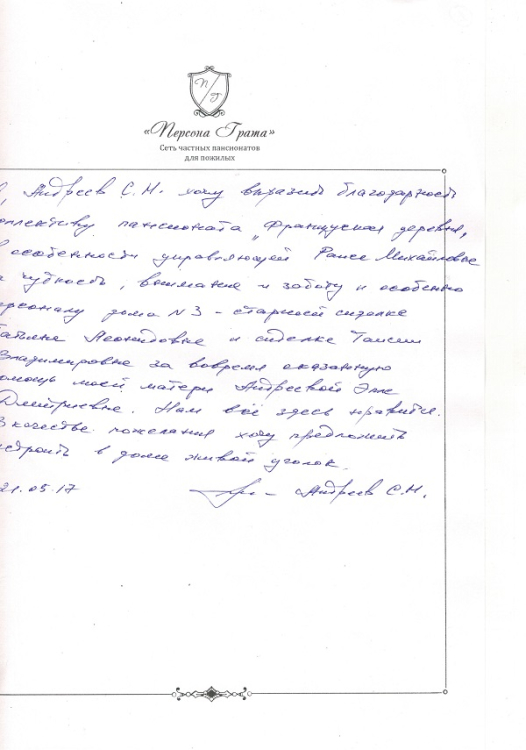 П
Г
«Персона Грата»
Сеть частных пансионатов
для пожилых
Андреев С.Н. хочу выразить благодарность
оллективу пансионата „Французская деревня,
в особенности управляющей Раисе Михайловне
а чуткость, внимание и заботу и особенно
ерсоналу дома N3 - старшей сиделке
Татьяне Леонидовне и сиделке Таисии
Владимировне за вовремя оказанную
омощь моей матери Андреевой Элле
Дмитриевне. Нам всё здесь нравится.
В качестве пожелания хочу предложить
устроить в доме живой уголок.
21.05.17 Андреев С.Н.